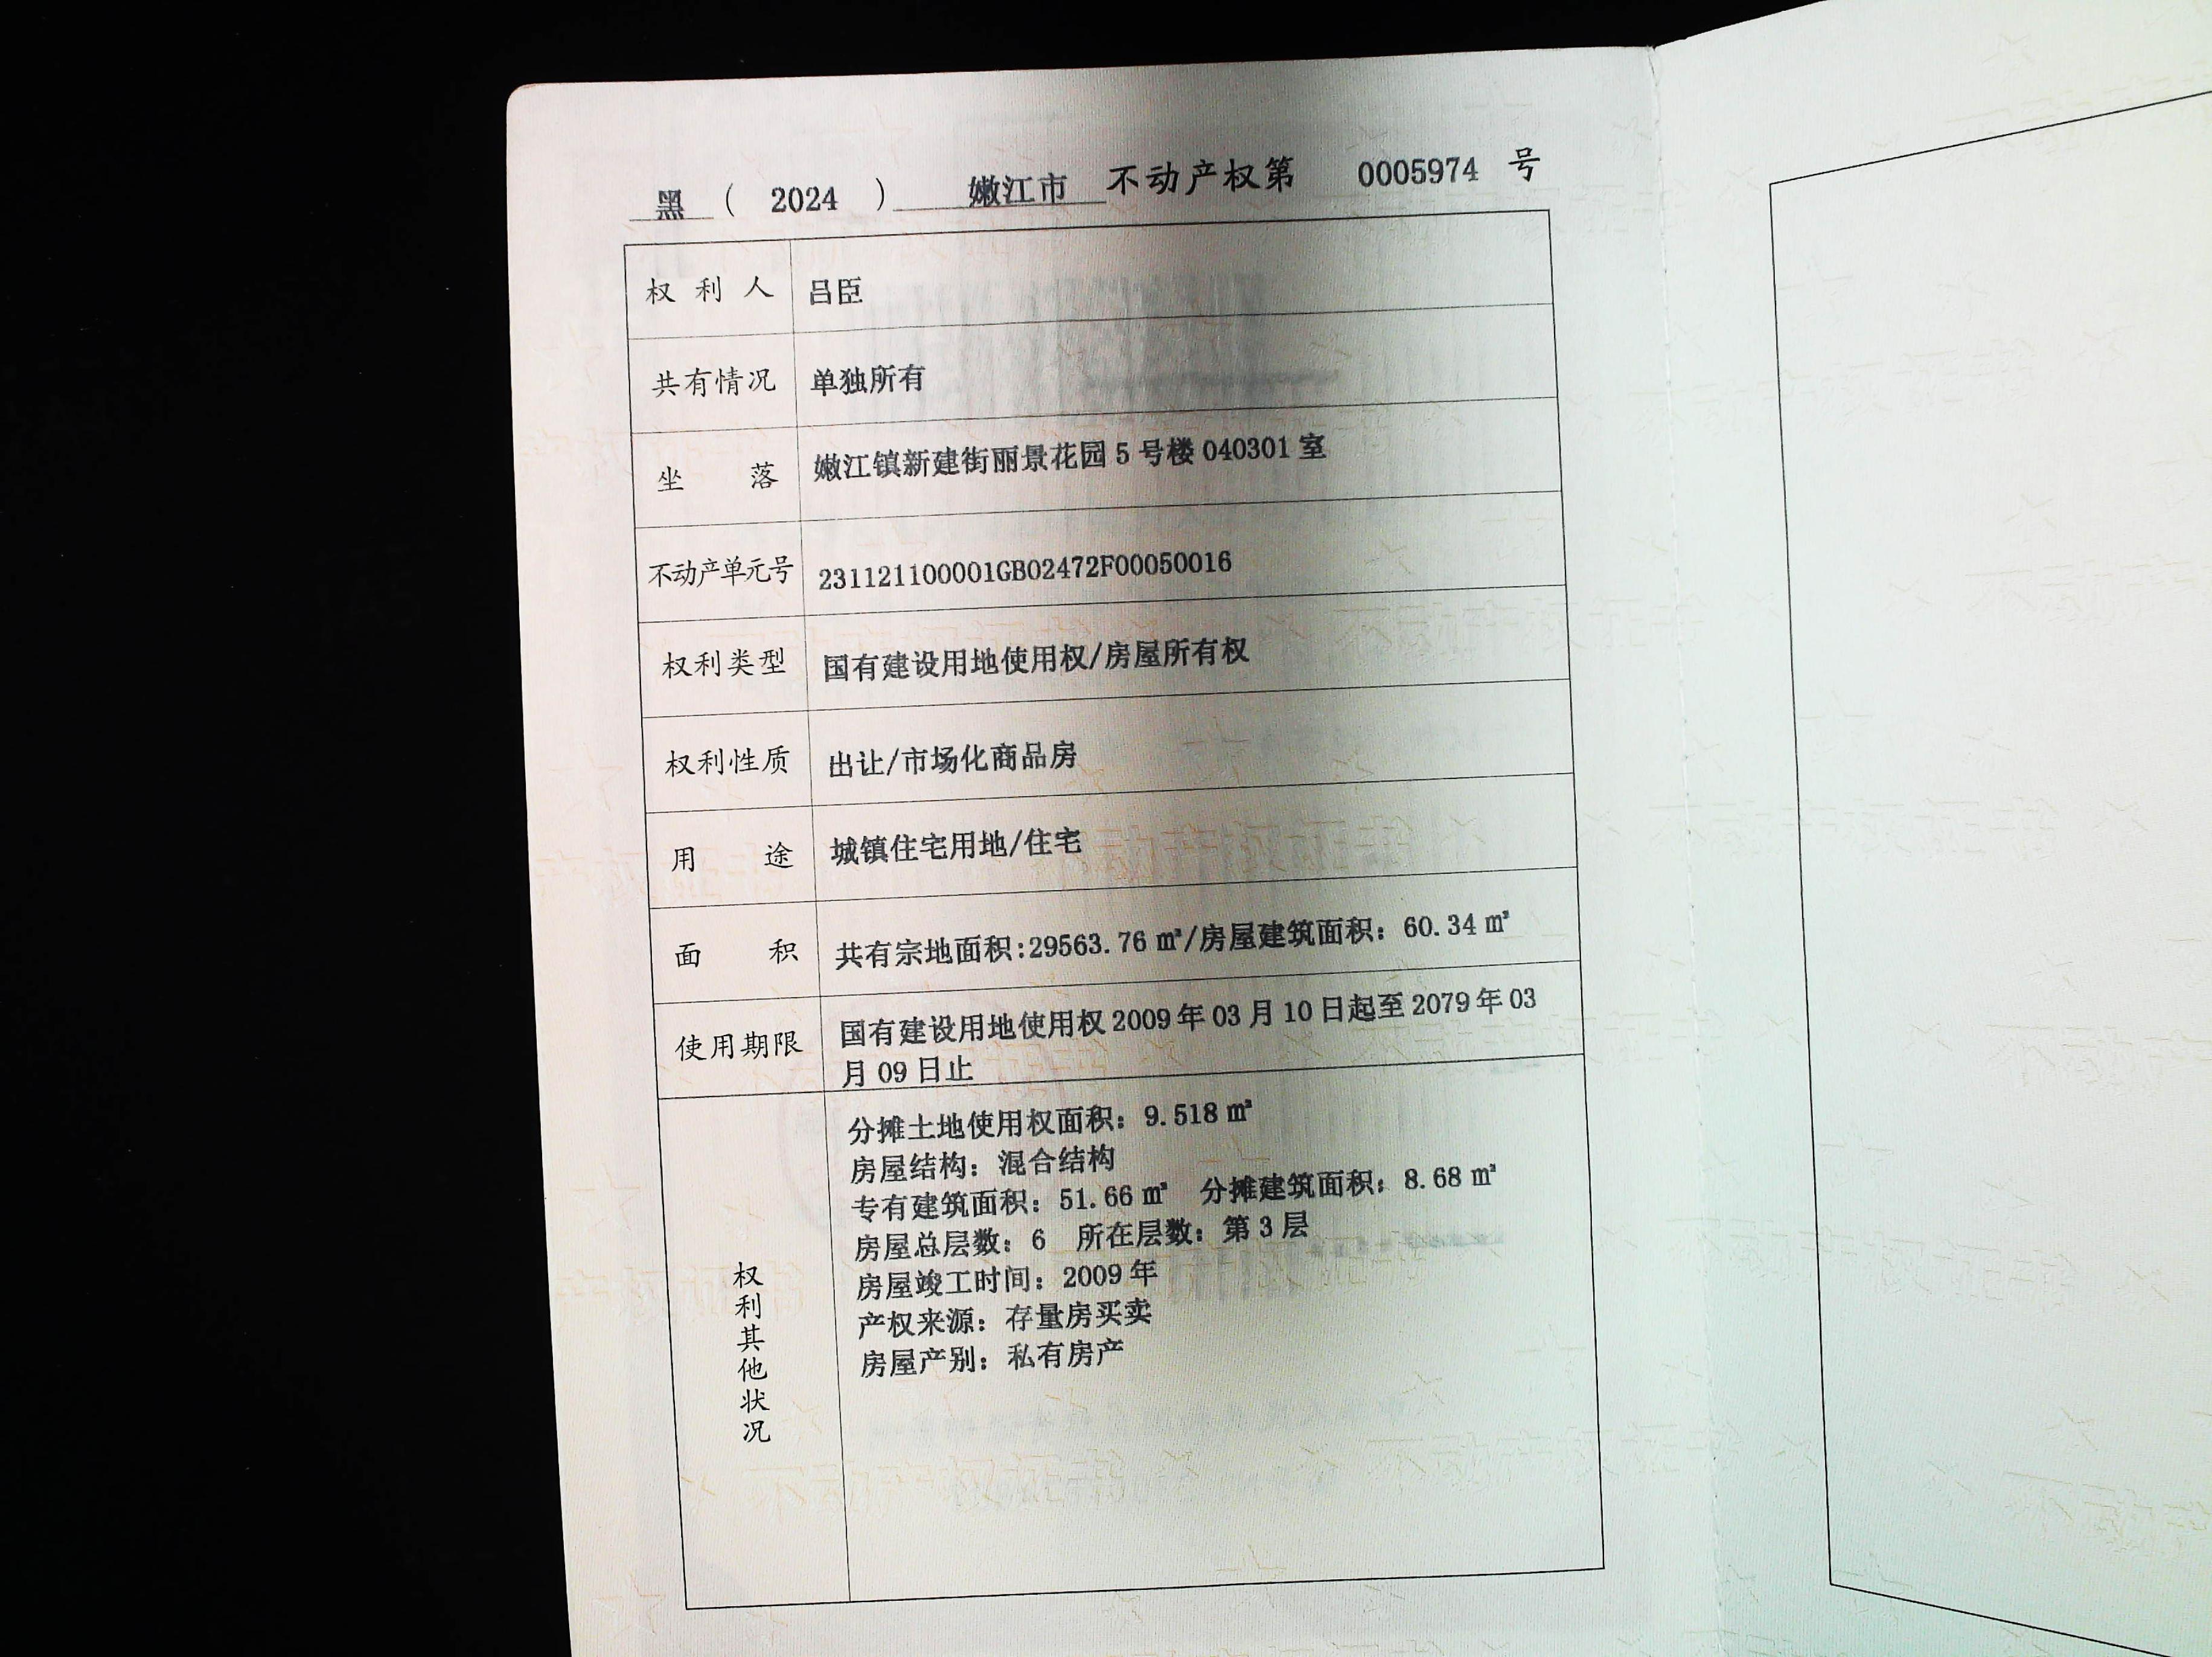 黑 ( 2024 ) 嫩江市 不动产权第 0005974 号
权利人 吕臣
共有情况 单独所有
坐落 嫩江镇新建街丽景花园 5 号楼 040301 室
不动产单元号 231121100001GB02472F00050016
权利类型 国有建设用地使用权/房屋所有权
权利性质 出让/市场化商品房
用途 城镇住宅用地/住宅
面积 共有宗地面积:29563.76 ㎡/房屋建筑面积：60.34 ㎡
使用期限 国有建设用地使用权 2009 年 03 月 10 日起至 2079 年 03
月 09 日止
权利其他状况
分摊土地使用权面积：9.518 ㎡
房屋结构：混合结构
专有建筑面积：51.66 ㎡ 分摊建筑面积：8.68 ㎡
房屋总层数：6 所在层数：第 3 层
房屋竣工时间：2009 年
产权来源：存量房买卖
房屋产别：私有房产